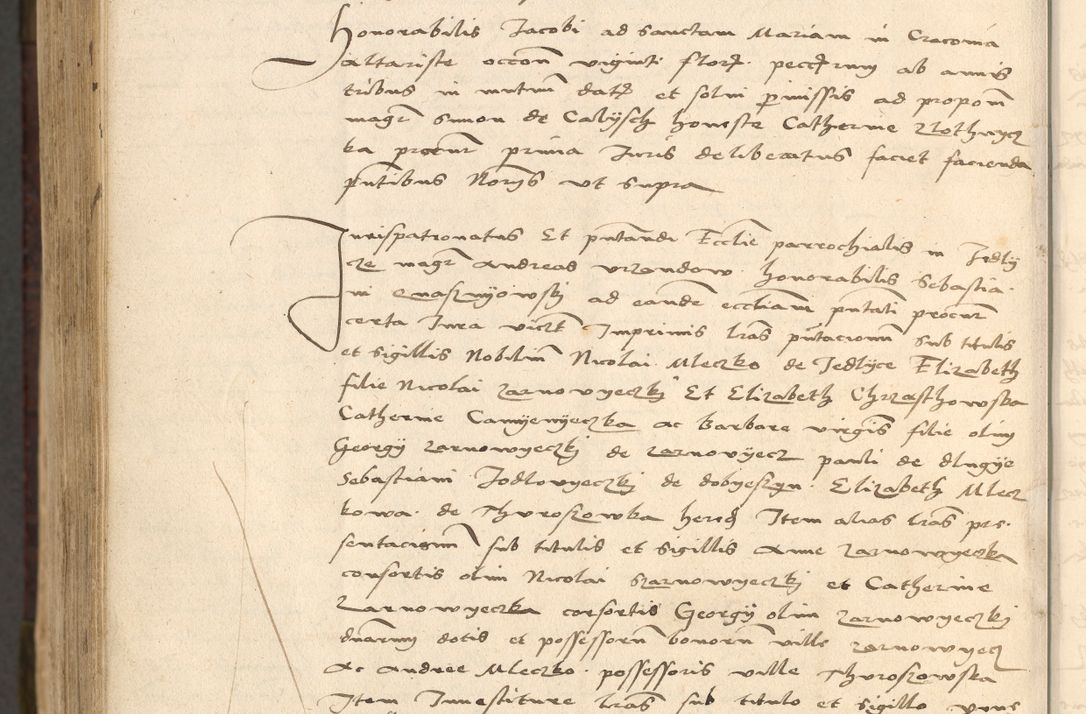 Honorabilis Jacobi ad Sanctam Mariam in Cracovia
altariste occon viginti flor pecctrum ab annis
tribus in mutuum dat et solui pmissis ad propon
magr Simon de Calysch honeste Catherine Zlothnycz
ka procur prima Juris deliberatus faciet facienda
pntibus Norys ut supra
Jurispatronatus Et pntandi Ecclie parrochialis in Jedly
cze magr Andreas Vrzandow honorabilis Sebastia
ni Gnasznyowski ad eande eccliam pntati procur
certa Jura vict Imprimis lras pntacionu sub titulis
et sigillis Nobilium Nicolai Mleczko de Jedlycze Elizabeth
filie Nicolai Zarnowyeczki Et Elizabeth Chrzasthowska
Catherine Camyenyeczka ac Barbare virgis filie olim
Georgij Zarnowyeczki de Zarnowyecz pauli de dlugye
Sebastiani Jodlovyeczki de dobyeszyn Elizabeth Mlecz
kowa de Thvroszowka hered Item alias lras pre
sentacionu sub titulis et sigillis Anne Zarnowyeczka
consortis olim Nicolai Szarnowyeczki et Catherine
Zarnowyeczka consortis Georgij olim Zarnowyeczki
duarum dotis et possessorum bonorum ville Zarnowyecz
Ac Andree Mleczko possessoris ville Thvroszowska
Item Inuestiture lras sub titulo et sigillo